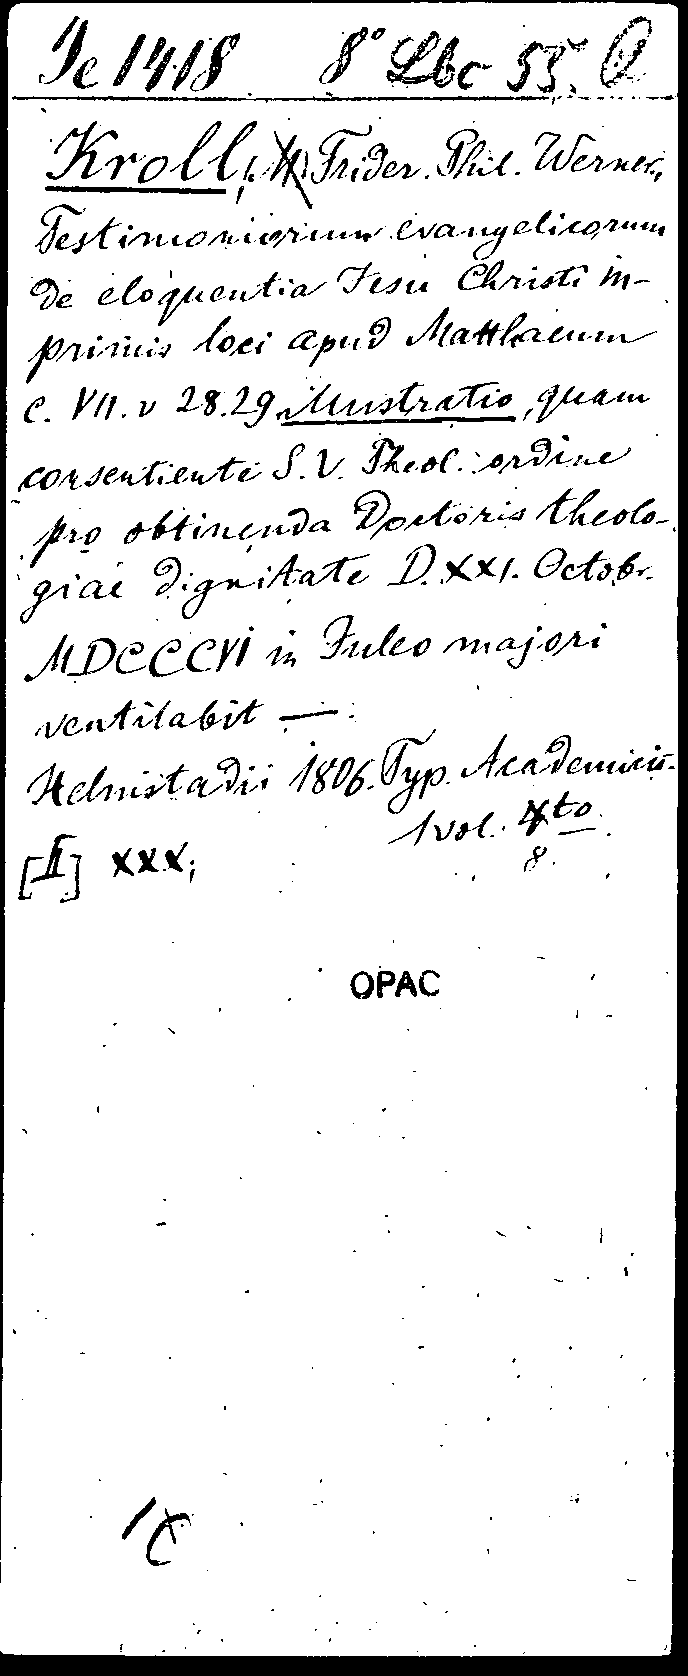 Je 1418 8° Lbc 55. Q
Kroll, Frider. Phil. Werner,
Testimoniorum evangelicorum
de eloquentia Jesu Christi in-
primis loci apud Matthaeum
c. VII. v 28.29 illustratio, quam
consentiente S. V. Theol. ordine
pro obtinenda Doctoris theolo-
giae dignitate D. XXI. Octobr.
MDCCCVI in Juleo majori
ventilabit —.
Helmstadii 1806. Typ. Academicis.
1 vol. 4to
8.
[II] XXX;
OPAC